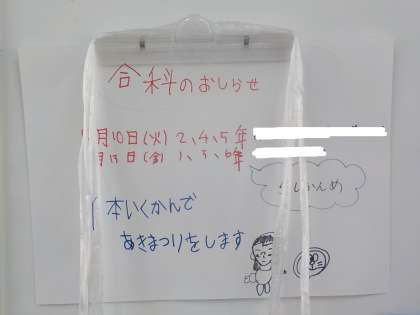 合科のおしらせ
月10日(火) 2、4、5年
月13日(金) 1、3、6年
体いくかんで
あきまつりをします